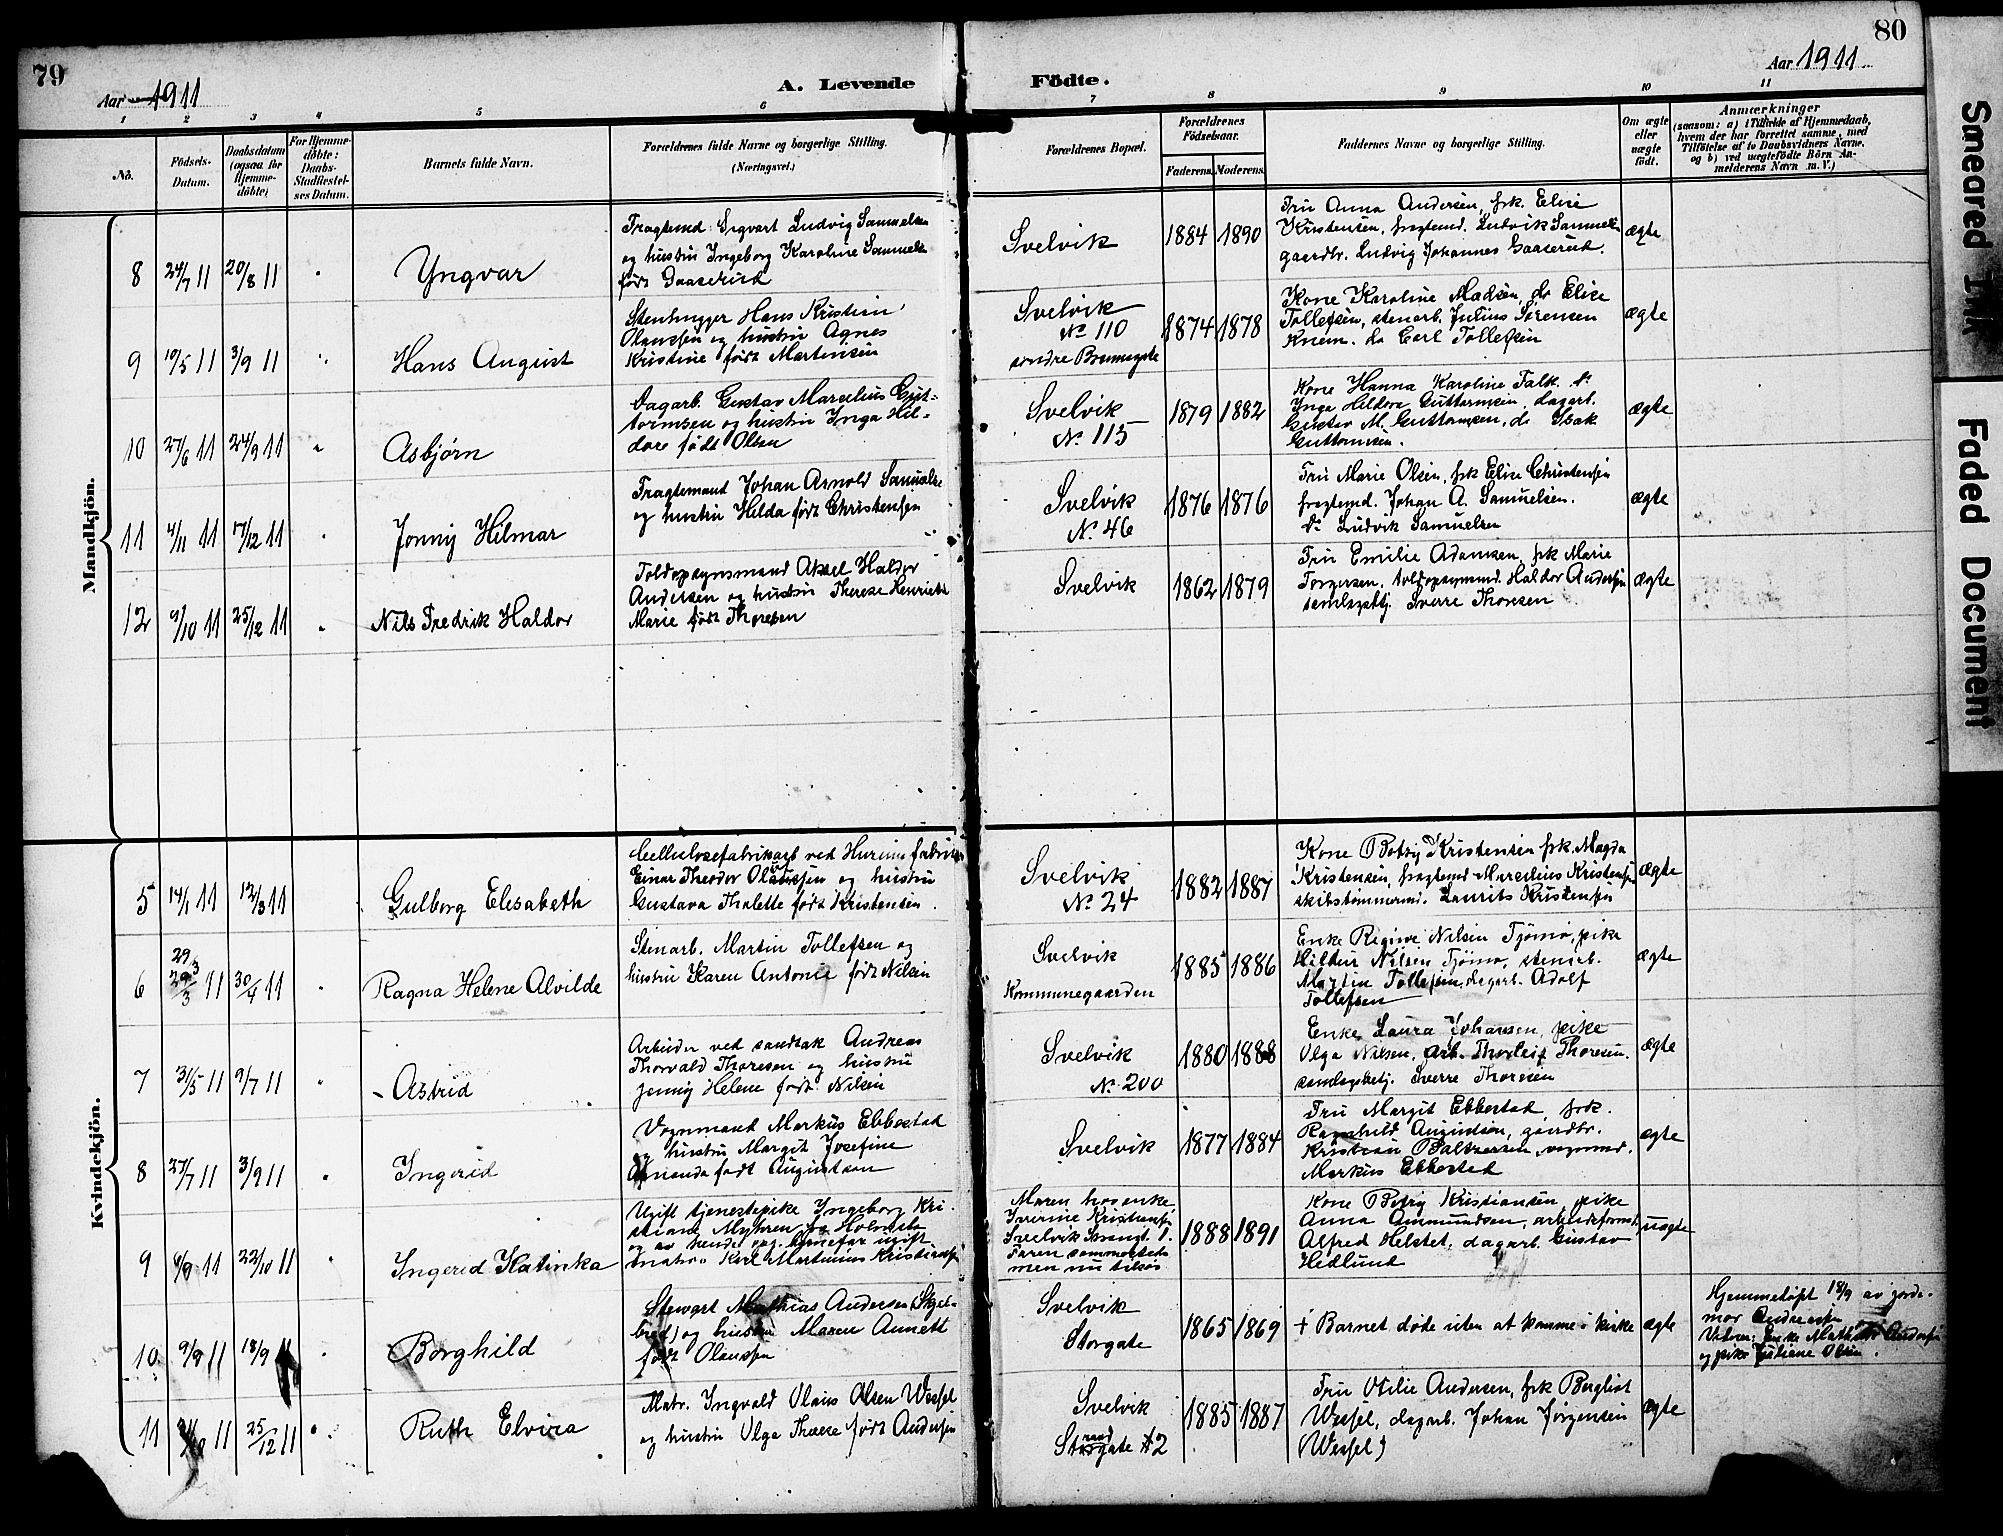 79
Aar 1911
A. Levende
1
2
3
4
5
6
No.
Födsels-
Datum.
Daabsdatum
(ogsaa for
Hjemme-
döbte)
For Hjemme-
döbte:
Daabs-
Stadfæstel-
ses Datum.
Barnets fulde Navn.
Forældrenes fulde Navne og borgerlige Stilling.
(Næringsvei.)
Födte.
80
Aar 1911
7
8
9
10
11
Forældrenes Bopæl.
Forældrenes
Födselsaar.
Faderens.
Moderens.
Faddernes Navne og borgerlige Stilling.
Om ægte
eller
uægte
födt.
Anmærkninger
(saasom: a) i Tilfælde af Hjemmedaab,
hvem der har forrettet samme, med
Tilföielse af to Daabsvidners Navne,
og b) ved uægtefödte Börn An-
melderens Navn m. V.)
Mandkjön.
8
24/7 11
20/8 11
"
Yngvar
Fragtemd. Sigvart Ludvig Samuelsen
og hustru Ingeborg Karoline Samuels
født Gaaserud
Svelvik
1884
1890
Fru Anna Andersen, frk Elise
Kristensen, fragtemd. Ludvik Samuelsen
gaardbr. Ludvig Johannes Gaaserud.
ægte
9
10/5 11
3/9 11
"
Hans August
Stenhugger Hans Kristian
Olaussen og hustru Agnes
Kristine født Martensen
Svelvik
No 110
søndre Brennagate
1874
1878
Kone Karoline Madsen, do Elise
Tollefsen, stenarb. Julius Sørensen
Knem. do Carl Tollefsen
ægte
10
27/6 11
24/9 11
"
Asbjørn
Dagarb. Gustav Marselius Gut-
tormsen og hustru Ynga Hil-
dore født Olsen
Svelvik
No 115
1879
1882
Kone Hanna Karoline Falk. do
Ynga Hildora Guttormsen, dagarb.
Gustav M. Guttormsen, do Isak
Guttormsen.
ægte
11
4/11 11
17/12 11
"
Jonny Hilmar
Fragtemand Johan Arnold Samuelse
og hustru Hilda født Christensen
Svelvik
No 46
1876
1876
Fru Marie Olsen, frk Elise Christensen
fragtemd. Johan A. Samuelsen.
do Ludvik Samuelsen
ægte
12
9/10 11
25/12 11
"
Nils Fredrik Haldor
Toldopsynsmand Aksel Haldor
Andersen og hustru Therese Henriette
Marie født Thoresen
Svelvik
1862
1879
Fru Emilie Adamsen, frk Marie
Torgersen, toldopsynmd. Haldor Andersen
samlagsbtj. Sverre Thoresen
ægte
Kvindekjön.
5
14/1 11
12/3 11
Gulborg Elisabeth
Cellulosefabrikarb ved Hurum fabriker
Einar Theodor Olaussen og hustru
Gustava Thalette født Kristensen.
Svelvik
No 24
1882
1887
Kone Betsy Kristensen frk. Magda
Kristensen, fragtemd Marselius Kristensen
skibstømmermd. Laurits Kristensen
ægte
6
29/3
29/3 11
30/4 11
"
Ragna Helene Alvilde
Stenarb. Martin Tollefsen og
hustru Karen Antonie født Nilsen
Svelvik
Kommunegaarden
1885
1886
Enke Regine Nilsen Tjømø, pike
Hildur Nilsen Tjømø, stenarb.
Martin Tollefsen, dagarb. Adolf
Tollefsen
ægte
7
31/5 11
9/7 11
"
Astrid
Arbeider ved sandtak Andreas
Thorvald Thoresen og hustru
Jenny Helene født Nilsen
Svelvik
No 200
1880
1888
Enke Laura Johansen, pike
Olga Nilsen, arb. Thorleif Thoresen.
samlagsbetj. Sverre Thoresen
ægte
8
27/7 11
3/9 11
"
Ingerid
Vognmand Markus Ebbestad
og hustru Margit Josefine
Amanda født Augustsen
Svelvik
1877
1884
Fru Margit Ebbestad, frk.
Ragnhild Augustsen, gaardbr.
Kristian Baltzersen, vognmd.
Markus Ebbestad
ægte
9
11
22/10 11
"
Ingerid Katinka
Ugift tjenestepike Ingeborg Kri-
stiane Myhren fra Holmsbu
og av hende opg. barnefar ugift
matros Karl Martinius Kristiansen
Moren hos enke
Iverine Kristiansen
Svelvik Strandg. 1.
Faren sammesteds
men nu tilsjøs
1888
1891
Kone Betsy Kristiansen, pike
Anna Ammundsen, arbeidsformd
Alfred Helstet, dagarb. Gustav
Hedlund
uægte
10
9/9 11
18/9 11
"
Borghild
Stewart Mathias Andersen (Skjel-
bred) og hustru Maren Annett
født Olaussen
Svelvik
Storgate
1865
1869
+ Barnet døde uten at komme i kirke
ægte
Hjemmedøpt 18/9 av jorde-
mor Andersen
Vitner: Enke Andersen
og pike Juliane Olsen.
11
11
25/12 11
"
Ruth Elvira
Matr. Ingvald Olaus Olsen Wessel
og hustru Olga Therese født Andersen
Svelvik
Strandgate 2
1885
1887
Fru Otilie Andersen, frk Bergliot
Wessel, dagarb. Johan Jørgensen
(Wessel)
ægte
Smeared Ink
Faded Document